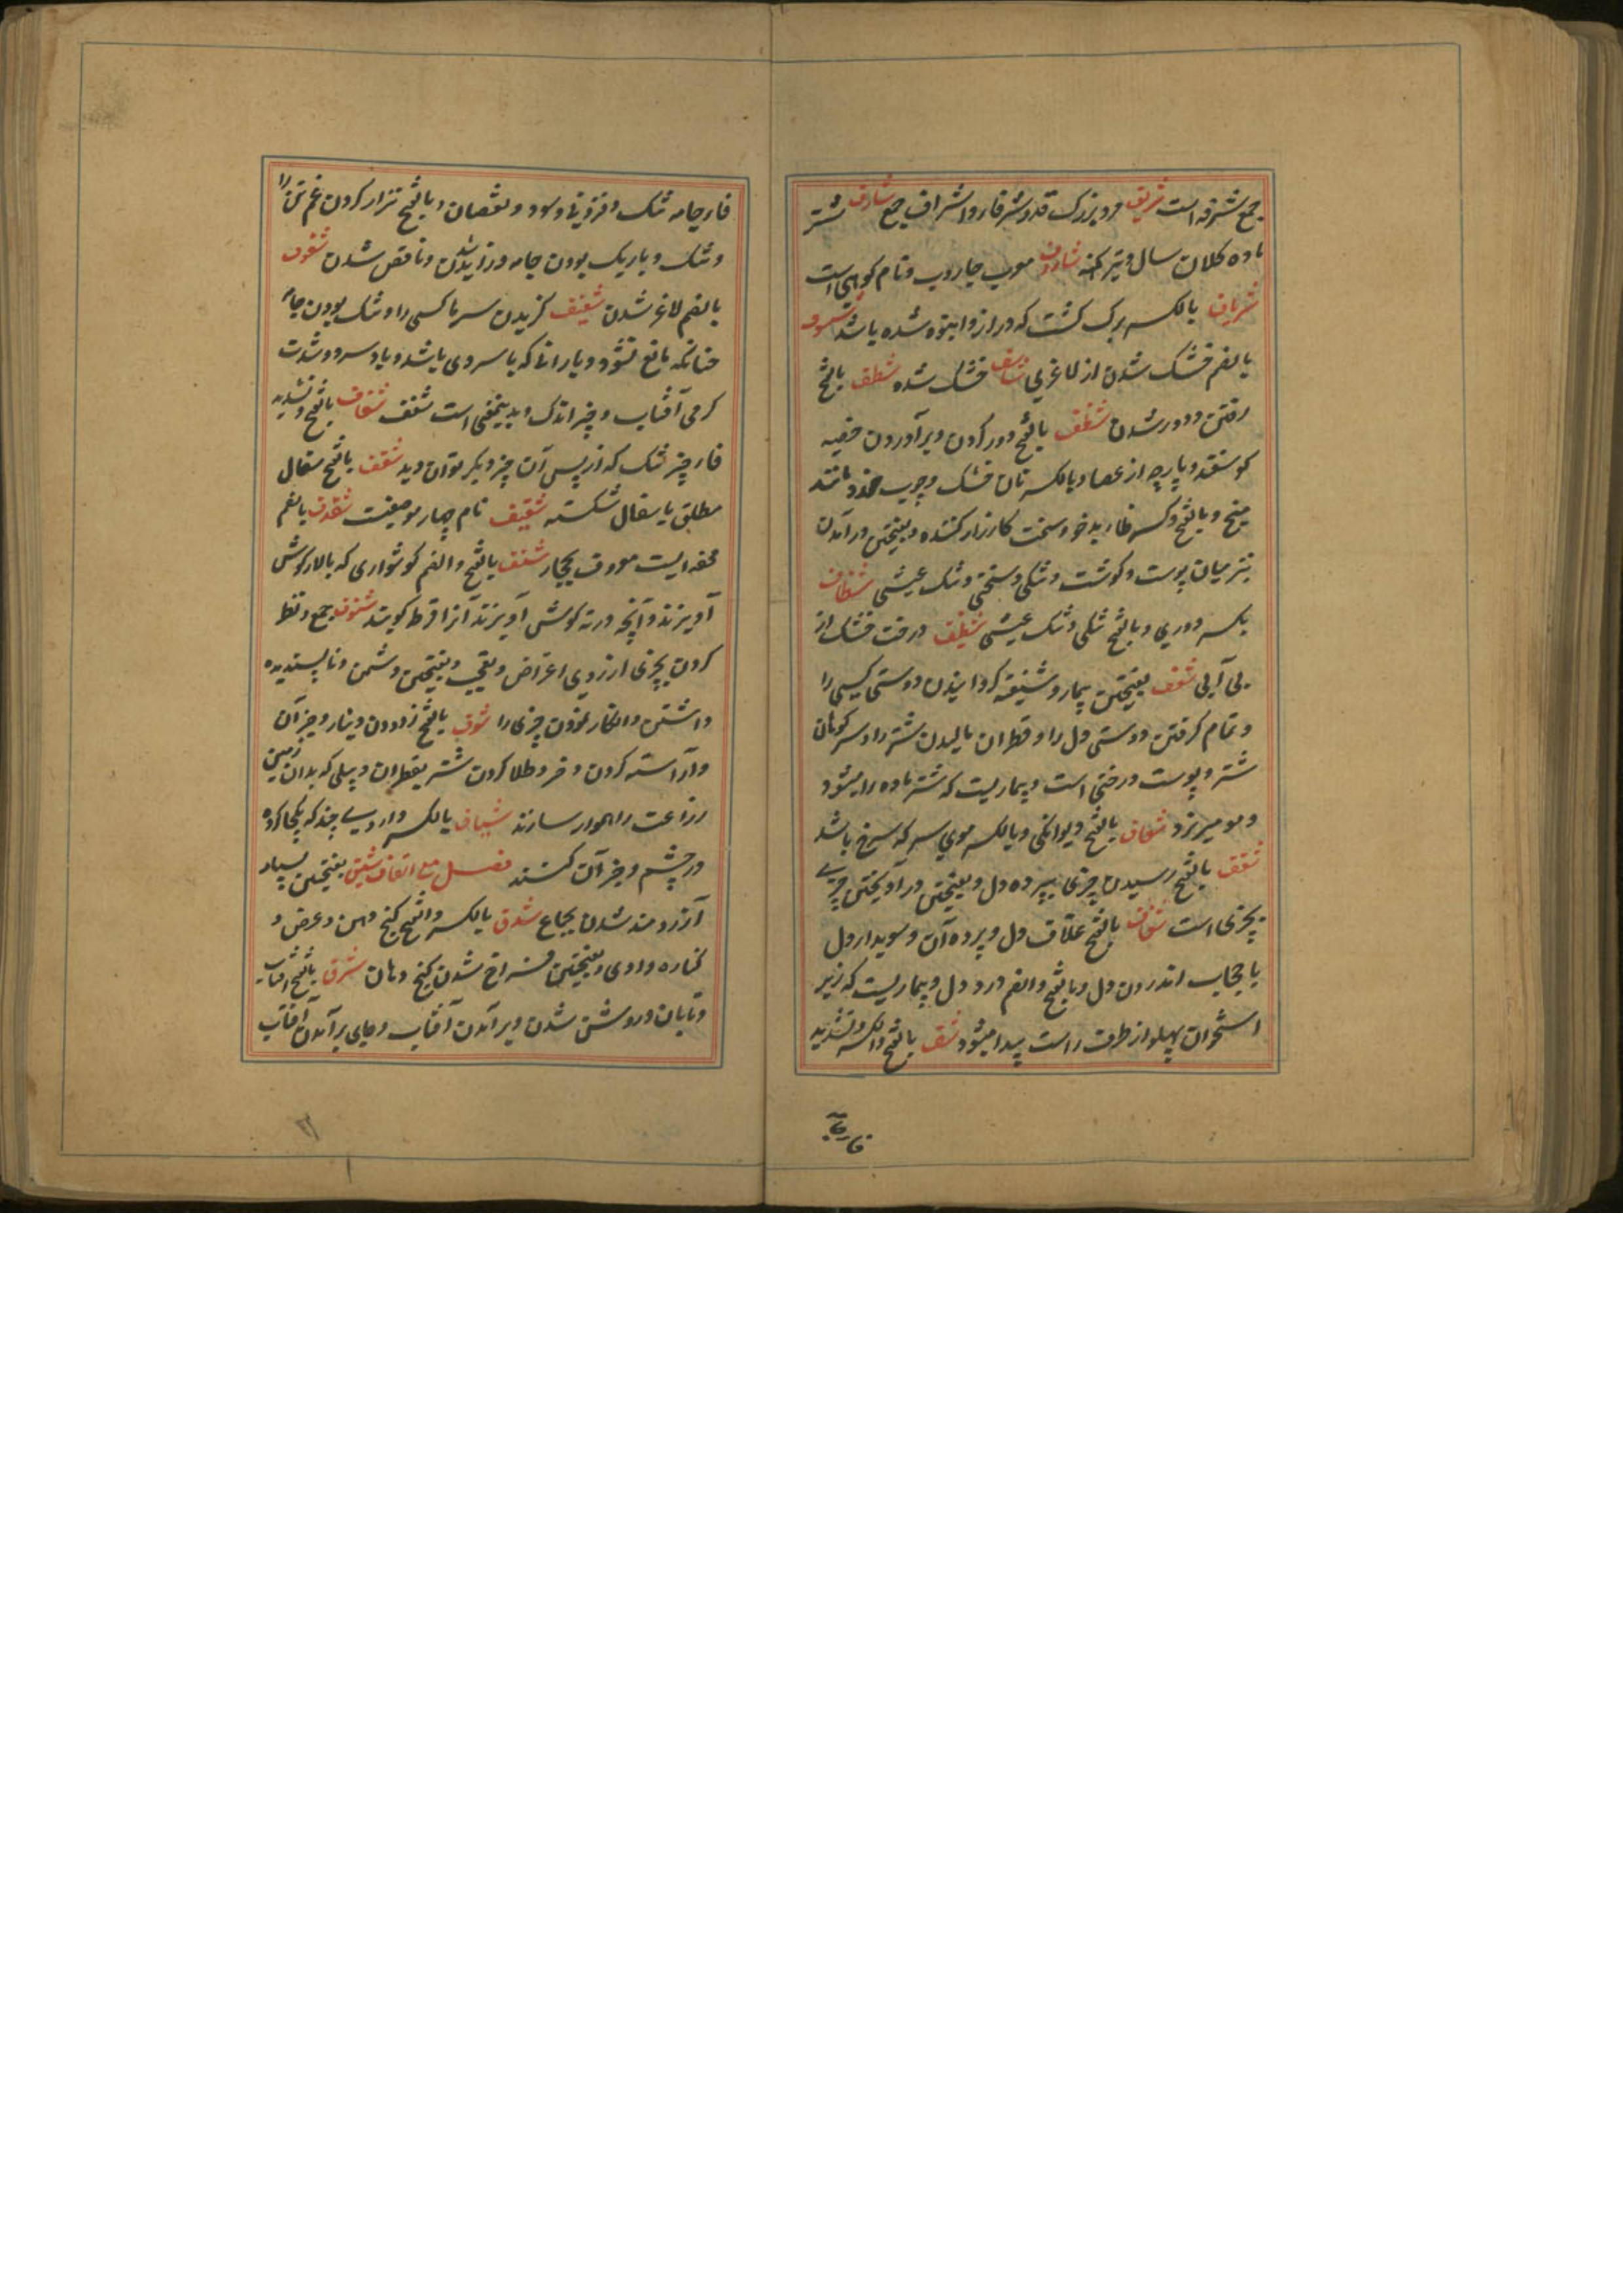 جمع شرفه است شریف مرد بزرگ قدر شرفا و اشراف جمع شارف شتر
ماده کلان سال و تیر کهنه شاروف معرب جاروب و نام کوهی است
شریاف بالکسر برگ کشت که دراز و انبوه شده باشد شسوف
بالضم خشک شدن از لاغری شاسف خشک شده شطف بالفتح
رفتن و دور شدن شظف بالفتح دور کردن و برآوردن خصیه
گوسفند و پارچه از عصا و بالکسر نان خشک و چوب خورد مانند
میخ و بالفتح و کسر ظا بدخو و سخت کارزار کننده و بفتحتین درآمدن
تیر میان پوست و گوشت و تنگی و سختی و تنگ عیشی شظاف
بکسر دوری و بالفتح تنگی و تنگ عیشی شظیف درخت خشک از
بی آبی شعف بفتحتین بیمار و شیفته گردانیدن دوستی کسی را
و تمام گرفتن دوستی دل را و قطران مالیدن شتر را و سر کوهان
شتر و پوست درختی است و بیماریست که شتر ماده را میشود
و مو میریزد شعاف بالفتح دیوانگی و بالکسر موی سر که سرخ باشد
شغف بالفتح رسیدن چیزی بپرده دل و بفتحتین در آویختن چیزی
بچیزی است شغاف بالفتح غلاف دل و پرده آن و سویدای دل
یا حجاب اندرون دل و بالفتح و الضم درد دل و بیماریست که زیر
استخوان پهلو از طرف راست پیدا میشود شف بالفتح و الکسر و تشدید
فا جامه
فا جامه تنک و افزونی و سود و نقصان و بالفتح نزار کردن غم تن را
و تنک و باریک بودن جامه و زاید شدن و ناقص شدن شفوف
بالضم لاغر شدن شفیف گزیدن سرما کسی را و تنک بودن جامه
چنانکه مانع نشود و باران که با سردی باشد و باد سرد و شدت
گرمی آفتاب و چیز اندک و بدینمعنی است شفف شفاف بالفتح و تشدید
فا چیز تنک که از پس آن چیز دیگر توان دید شقف بالفتح سفال
مطلق یا سفال شکسته شقیف نام چهار موضعست شقدف بالضم
محفه ایست معروف بحجاز شنف بالفتح و الضم گوشواری که بالای گوش
آویزند و آنچه در ته گوش آویزند آنرا قرط گویند شنوف جمع و نظر
کردن بچیزی از روی اعراض و تعجب و بفتحتین دشمن و ناپسندیده
داشتن و انکار نمودن چیزی را شوف بالفتح زدودن دینار و جز آن
و آراسته کردن و فرو طلا کردن شتر بقطران و بیلی که بدان زمین
زراعت را هموار سازند شیاف بالکسر داروی چند که یکجا کرده
در چشم و جز آن کشند فصل مع القاف شبق بفتحتین بسیار
آرزومند شدن بجماع شدق بالکسر و الفتح کنج دهن و عرض و
کناره وادی و بفتحتین فراخ شدن کنج دهان شرق بالفتح آفتاب
و تابان و روشن شدن و برآمدن آفتاب و جای برآمدن آفتاب